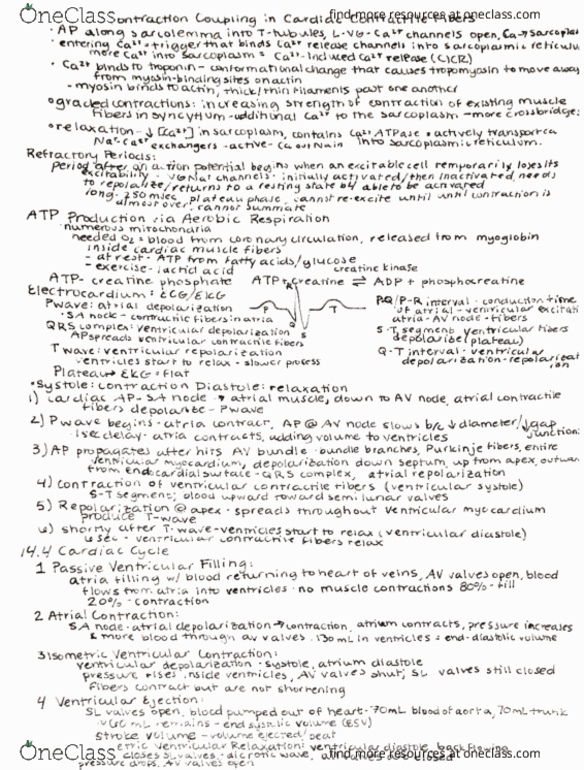 OneClass
find more resources at oneclass.com
Contraction Coupling in Cardiac Contractile Fibers
· AP along sarcolemma into T-tubules, L-VG-Ca²⁺ channels open, Ca → sarcopl
· entering Ca²⁺ · trigger that binds Ca²⁺ release channels into sarcoplasmic reticulu
more Ca²⁺ into sarcoplasm = Ca²⁺-Induced Ca²⁺ release (CICR)
· Ca²⁺ binds to troponin - conformational change that causes tropomyosin to move away
from myosin-binding sites on actin
- myosin binds to actin, thick/thin filaments past one another
· graded contractions: increasing strength of contraction of existing muscle
fibers in syncytium - additional Ca²⁺ to the sarcoplasm - more crossbridges
· relaxation - ↓ [Ca²⁺] in sarcoplasm, contains Ca²⁺ ATPase · actively transport Ca
Na⁺-Ca²⁺ exchangers - active - Ca out Na in into sarcoplasmic reticulum.
Refractory Periods:
period after an action potential begins when an excitable cell temporarily loses its
excitability · VG Na⁺ channels · initially activated/then inactivated, needs
to repolarize/returns to a resting state b4 able to be activated
long · 250 msec, plateau phase, cannot re-excite until until contraction is
almost over, cannot summate
ATP Production via Aerobic Respiration
· numerous mitochondria
needed O₂ = blood from coronary circulation, released from myoglobin
inside cardiac muscle fibers
- at rest - ATP from fatty acids/glucose
- exercise - lactic acid
creatine kinase
ATP - creatine phosphate ATP + Creatine ⇌ ADP + phosphocreatine
Electrocardium: ECG/EKG
P wave: atrial depolarization
· SA node - contractile fibers in atria
QRS complex: ventricular depolarization
AP spreads ventricular contractile fibers
T wave: ventricular repolarization
ventricles start to relax · slower process
Plateau → EKG = flat
R
Q
S
T
P·Q/P-R interval · conduction time
of atrial - ventricular excitati
atria - AV node - fibers
S·T segment · ventricular fibers
depolarize (plateau)
Q-T interval - ventricular
depolarization - repolarizat
ion
· Systole: contraction Diastole: relaxation
1) cardiac AP - SA node → atrial muscle, down to AV node, atrial contractile
fibers depolarize - P wave
2) P wave begins - atria contract, AP @ AV node slows b/c ↓ diameter/↓ gap
junction:
.1 sec delay - atria contracts, adding volume to ventricles
3) AP propagates after hits AV bundle · bundle branches, Purkinje fibers, entire
ventricular myocardium, depolarization down septum, up from apex, outwar
from endocardial surface - QRS complex, atrial repolarization
4) contraction of ventricular contractile fibers (ventricular systole)
S-T segment; blood upward toward semilunar valves
5) Repolarization @ apex · spreads throughout ventricular myocardium
produce T-wave
6) shortly after T-wave - ventricles start to relax (ventricular diastole)
.4 sec · ventricular contractile fibers relax
14.4 Cardiac Cycle
1 Passive Ventricular Filling:
atria filling w/ blood returning to heart of veins, AV valves open, blood
flows from atria into ventricles · no muscle contractions 80% · fill
20% · contraction
2 Atrial Contraction:
SA node · atrial depolarization → contraction, atrium contracts, pressure increases
& more blood through av valves · 130 mL in ventricles = end-diastolic volume
3 Isometric Ventricular Contraction:
ventricular depolarization - systole, atrium diastole
pressure rises inside ventricles, AV valves shut; SL valves still closed
fibers contract but are not shortening
4 Ventricular Ejection:
SL valves open, blood pumped out of heart - 70mL blood of aorta, 70mL trunk
60 mL remains - end systolic volume (ESV)
stroke volume - volume ejected/beat
etric Ventricular Relaxation: ventricular diastole, back
closes SL valves · dicrotic wave, closed
pressure drops, AV valves open
OneClass
find more resources at oneclass.com